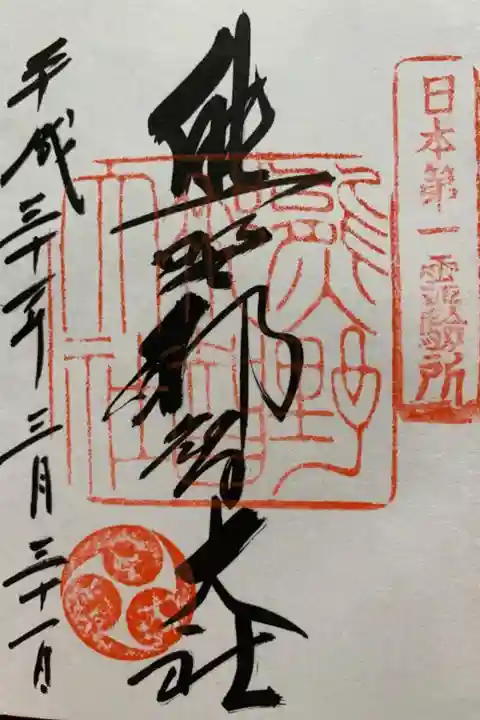 日本第一霊験所
熊野那智大社
熊野
那智
大社
平成三十一年三月三十一日